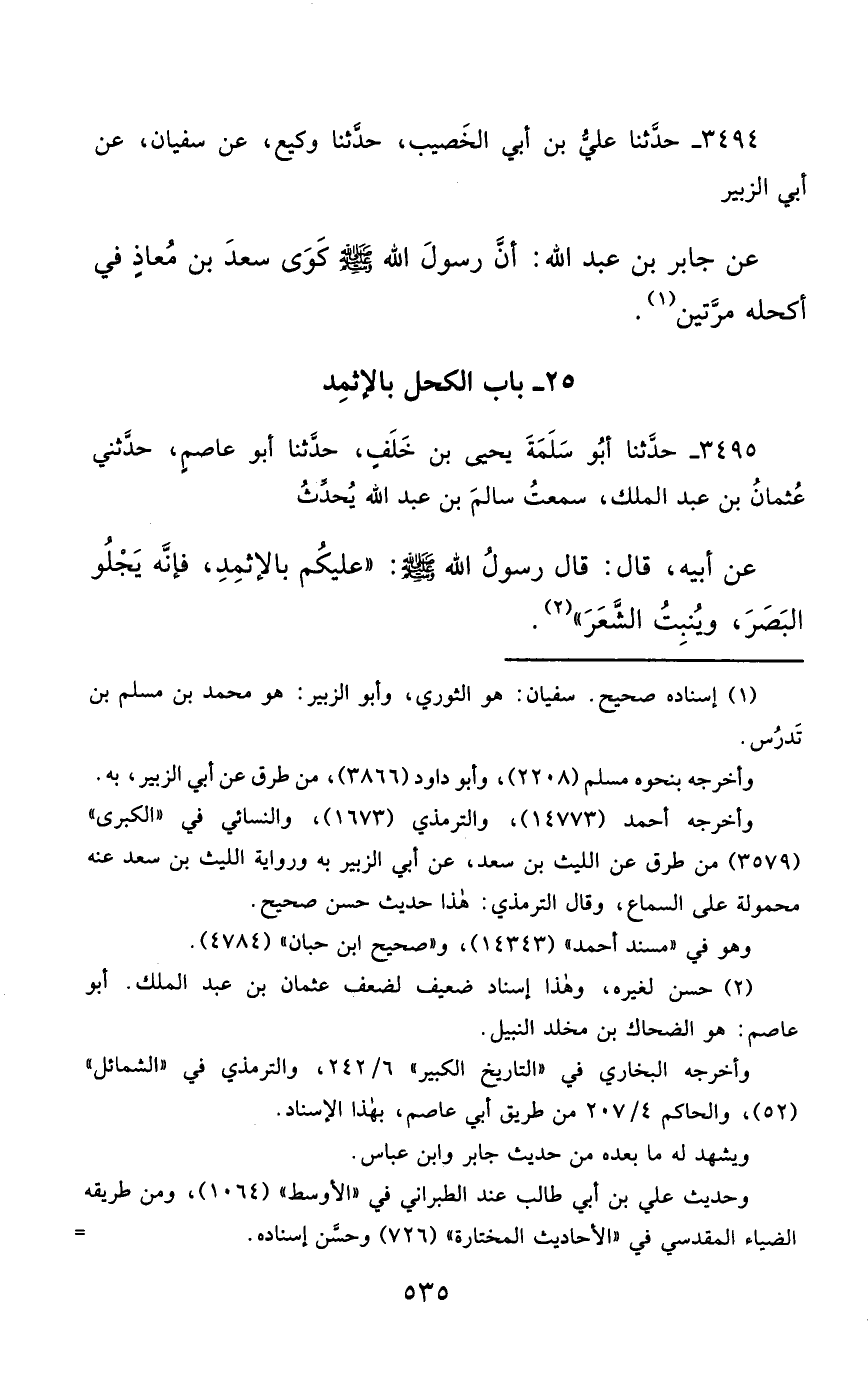 ٣٤٩٤ـ حدَّثنا عليُّ بن أبي الخَصيب، حدَّثنا وكيع، عن سفيان، عن
أبي الزبير
عن جابر بن عبد الله: أنَّ رسولَ الله ﷺ كَوَى سعدَ بن مُعاذٍ في
أكحله مرَّتين(١).
٢٥ـ باب الكحل بالإثمِد
٣٤٩٥ـ حدَّثنا أبُو سَلَمَةَ يحيى بن خَلَفٍ، حدَّثنا أبو عاصمٍ، حدَّثني
عُثمانُ بن عبد الملك، سمعتُ سالمَ بن عبد الله يُحدِّثُ
عن أبيه، قال: قال رسولُ الله ﷺ: «عليكُم بالإثمِدِ، فإنَّه يَجْلُو
البَصَرَ، ويُنبِتُ الشَّعَرَ»(٢).
(١) إسناده صحيح. سفيان: هو الثوري، وأبو الزبير: هو محمد بن مسلم بن
تَدرُس.
وأخرجه بنحوه مسلم (٢٢٠٨)، وأبو داود (٣٨٦٦)، من طرق عن أبي الزبير، به.
وأخرجه أحمد (١٤٧٧٣)، والترمذي (١٦٧٣)، والنسائي في «الكبرى»
(٣٥٧٩) من طرق عن الليث بن سعد، عن أبي الزبير به ورواية الليث بن سعد عنه
محمولة على السماع، وقال الترمذي: هٰذا حديث حسن صحيح.
وهو في «مسند أحمد» (١٤٣٤٣)، و«صحيح ابن حبان» (٤٧٨٤).
(٢) حسن لغيره، وهٰذا إسناد ضعيف لضعف عثمان بن عبد الملك. أبو
عاصم: هو الضحاك بن مخلد النبيل.
وأخرجه البخاري في «التاريخ الكبير» ٢٤٢/٦، والترمذي في «الشمائل»
(٥٢)، والحاكم ٢٠٧/٤ من طريق أبي عاصم، بهٰذا الإسناد.
ويشهد له ما بعده من حديث جابر وابن عباس.
وحديث علي بن أبي طالب عند الطبراني في «الأوسط» (١٠٦٤)، ومن طريقه
الضياء المقدسي في «الأحاديث المختارة» (٧٢٦) وحسَّن إسناده. =
٥٣٥